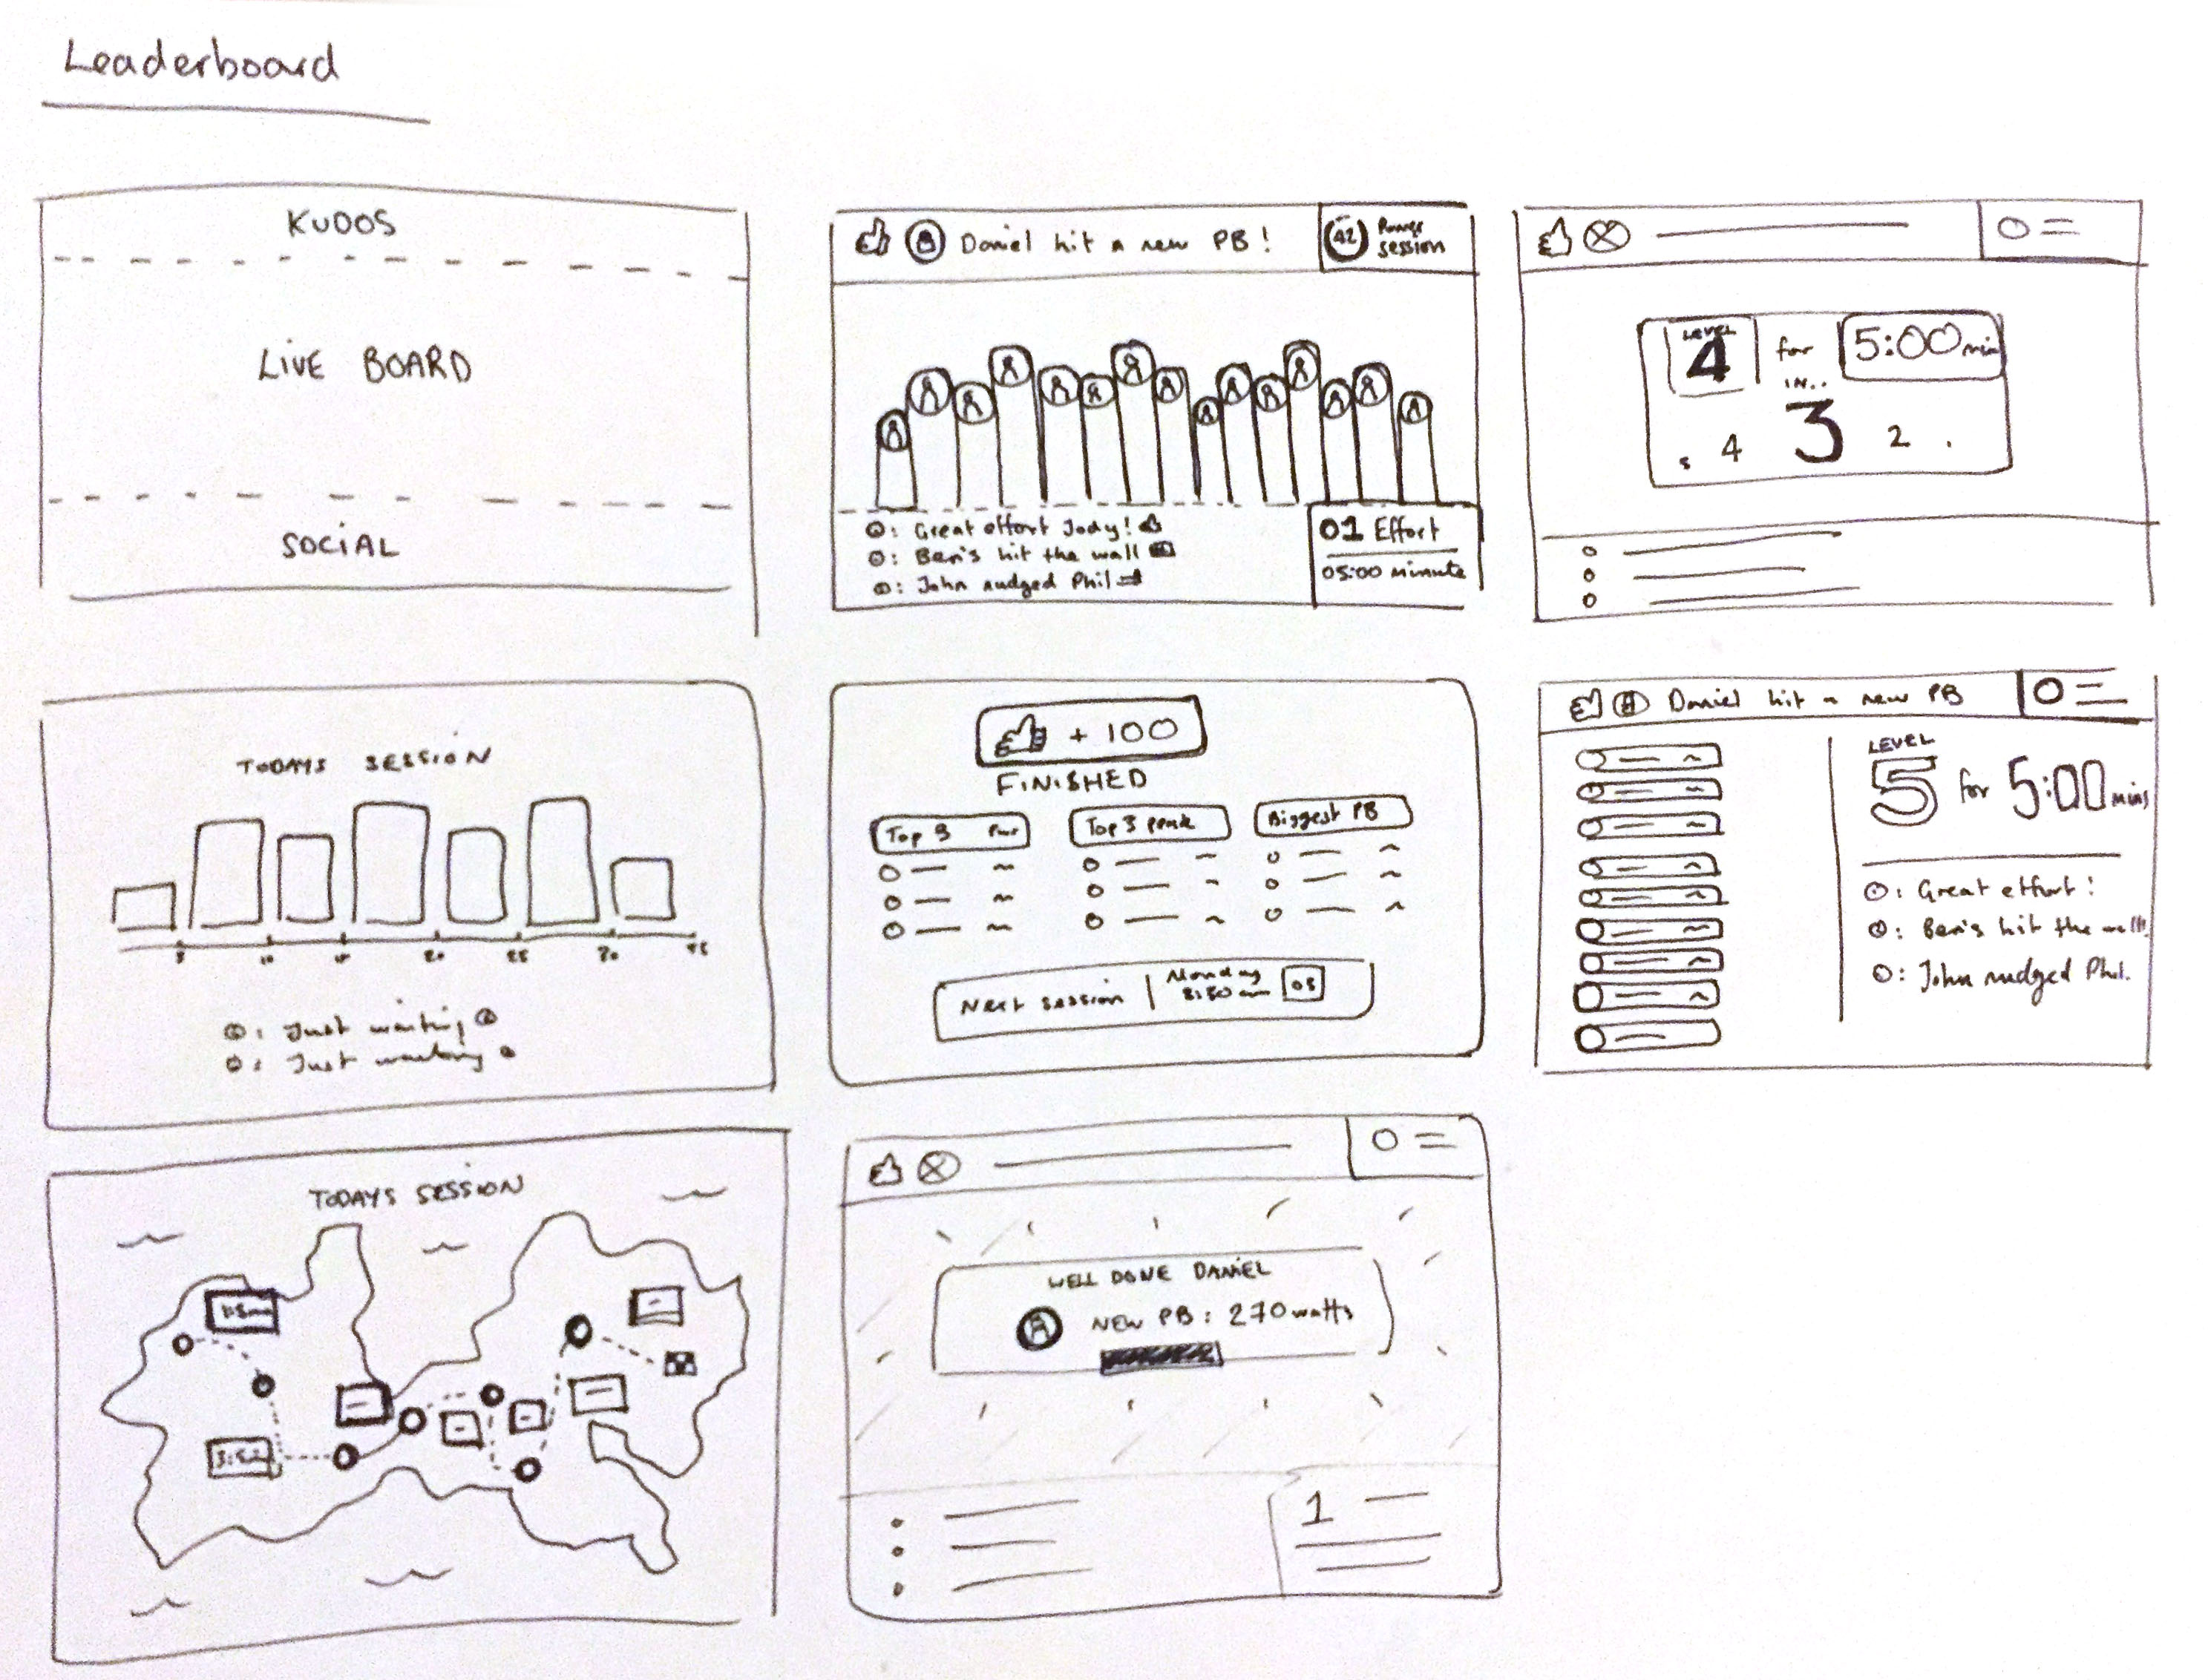 Leaderboard
KUDOS
LIVE BOARD
SOCIAL
Daniel hit a new PB!
42
Power
session
: Great effort Jody!
: Ben's hit the wall
: John nudged Phil
01 Effort
05:00 minute
LEVEL
4 for 5:00 min
IN..
5 4 3 2 .
TODAYS SESSION
5 10 15 20 25 30
: Just waiting
: Just waiting
+ 100
FINISHED
Top 3 Pwr
Top 3 peak
Biggest PB
Next session
Monday
Daniel hit a new PB
LEVEL
5 for 5:00 mins
: Great effort!
: Ben's hit the wall!
: John nudged Phil.
TODAYS SESSION
WELL DONE DANIEL
NEW PB: 270 watts
1